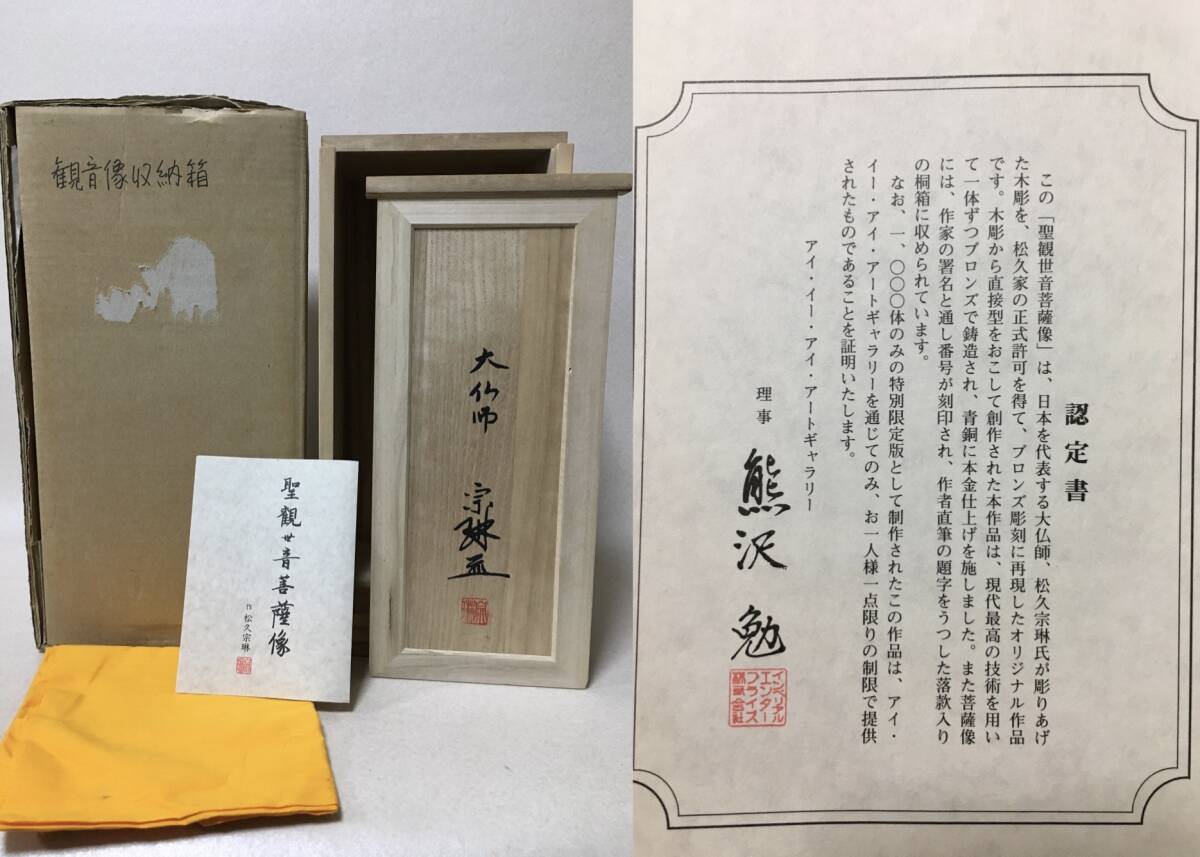 観音像収納箱
大仏師 宗琳
聖觀世音菩薩像
作 松久宗琳
認定書
この「聖観世音菩薩像」は、日本を代表する大仏師、松久宗琳氏が彫りあげ
た木彫を、松久家の正式許可を得て、ブロンズ彫刻に再現したオリジナル作品
です。木彫から直接型をおこして創作された本作品は、現代最高の技術を用い
て一体ずつブロンズで鋳造され、青銅に本金仕上げを施しました。また菩薩像
には、作家の署名と通し番号が刻印され、作者直筆の題字をうつした落款入り
の桐箱に収められています。
なお、一、〇〇〇体のみの特別限定版として制作されたこの作品は、アイ・
イー・アイ・アートギャラリーを通じてのみ、お一人様一点限りの制限で提供
されたものであることを証明いたします。
アイ・イー・アイ・アートギャラリー
理事 熊沢 勉
インペリアル
エンター
プライズ
株式会社